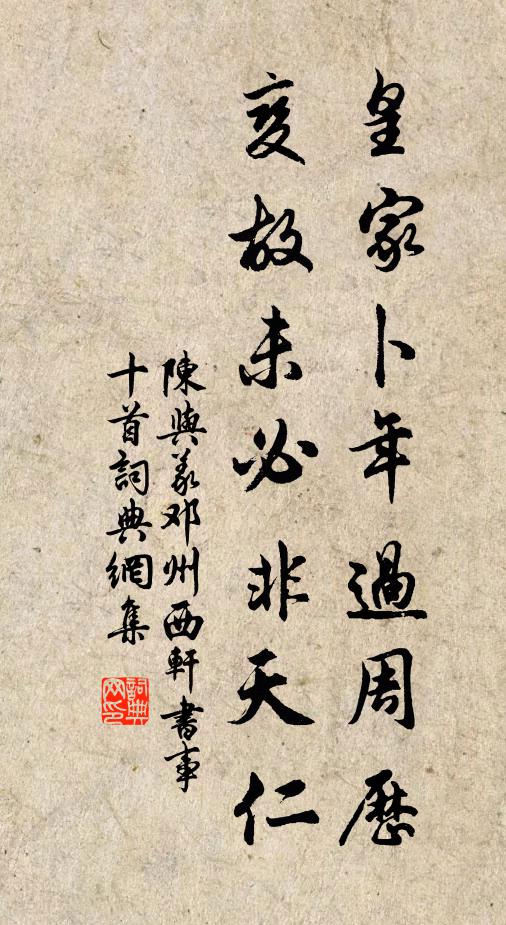 皇家卜年過周歷
変故未必非天仁
陳與義邓州西軒書事
十首詞典網集
詞典
网印